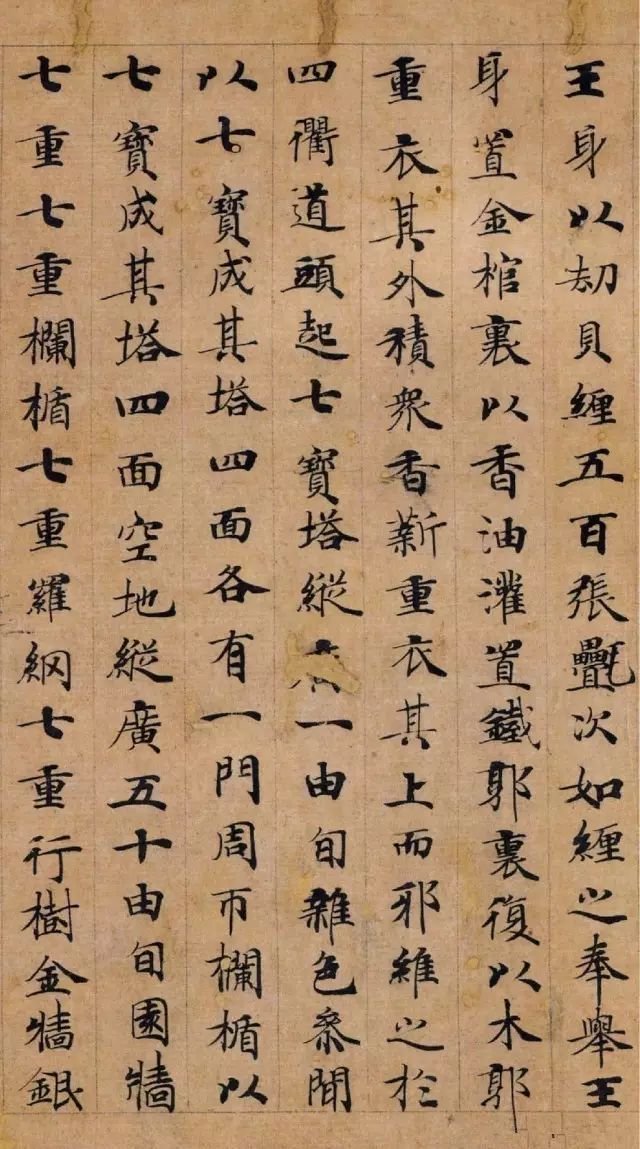 王身以劫貝纏五百張㲲次如纏之奉舉王
身置金棺裏以香油灌置鐵郭裏復以木郭
重衣其外積衆香薪重衣其上而耶維之於
四衢道頭起七寶塔縱一由旬雜色叅閒
以七寶成其塔四面各有一門周帀欄楯以
七寶成其塔四面空地縱廣五十由旬園牆
七重七重欄楯七重羅網七重行樹金牆銀